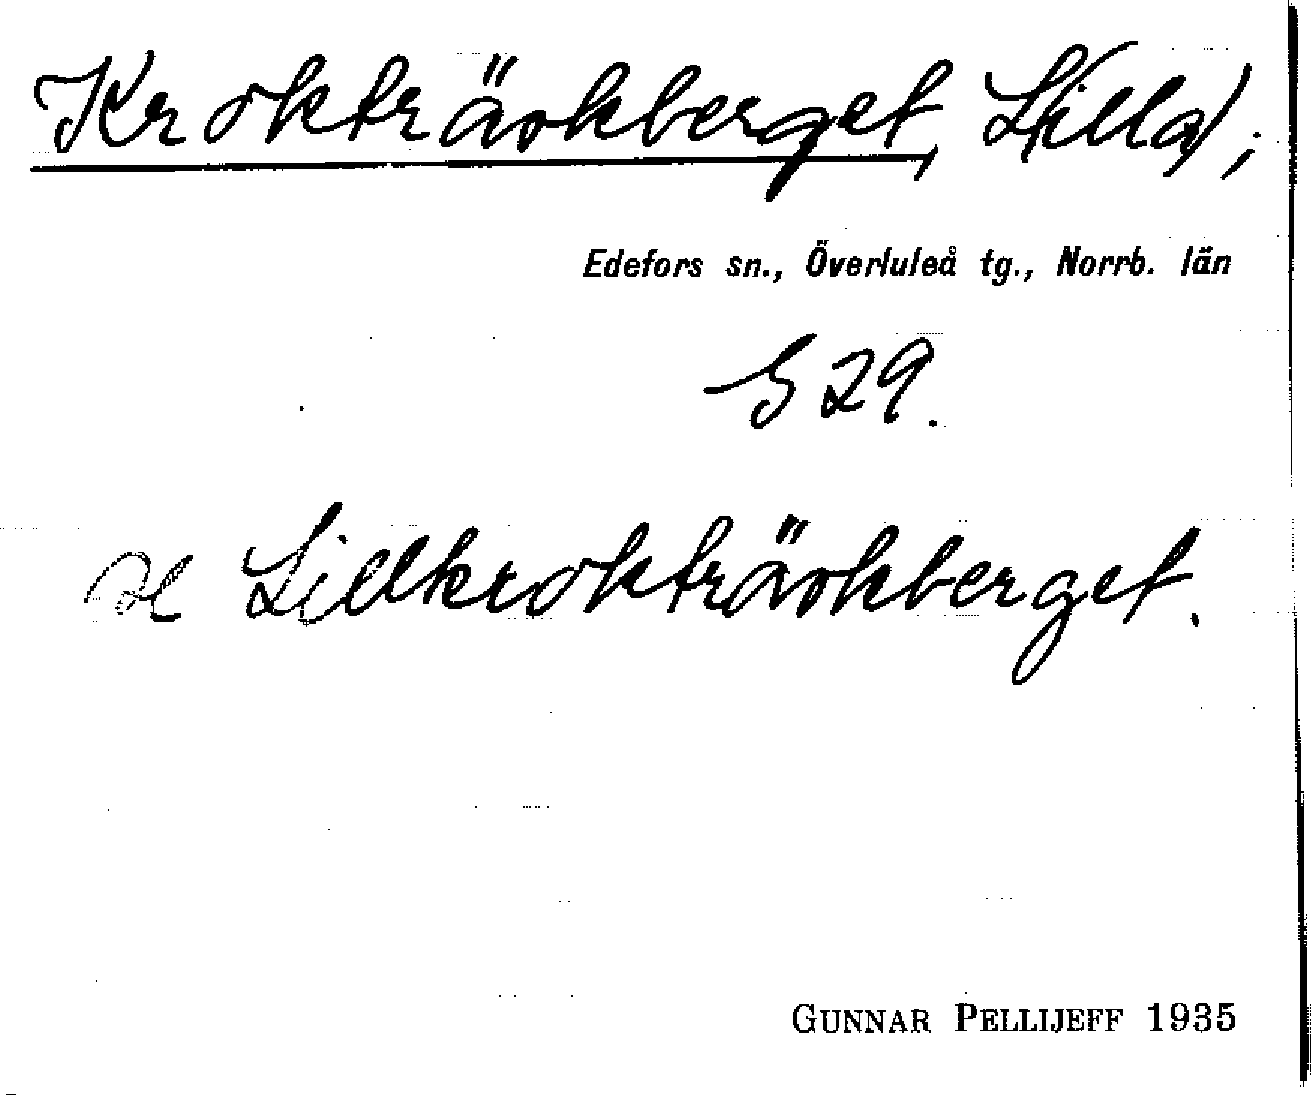 Krokträskberget, (Lilla);
Edefors sn., Överluleå tg., Norrb. län
S 29.
se Lillkrokträskberget.
GUNNAR PELLIJEFF 1935